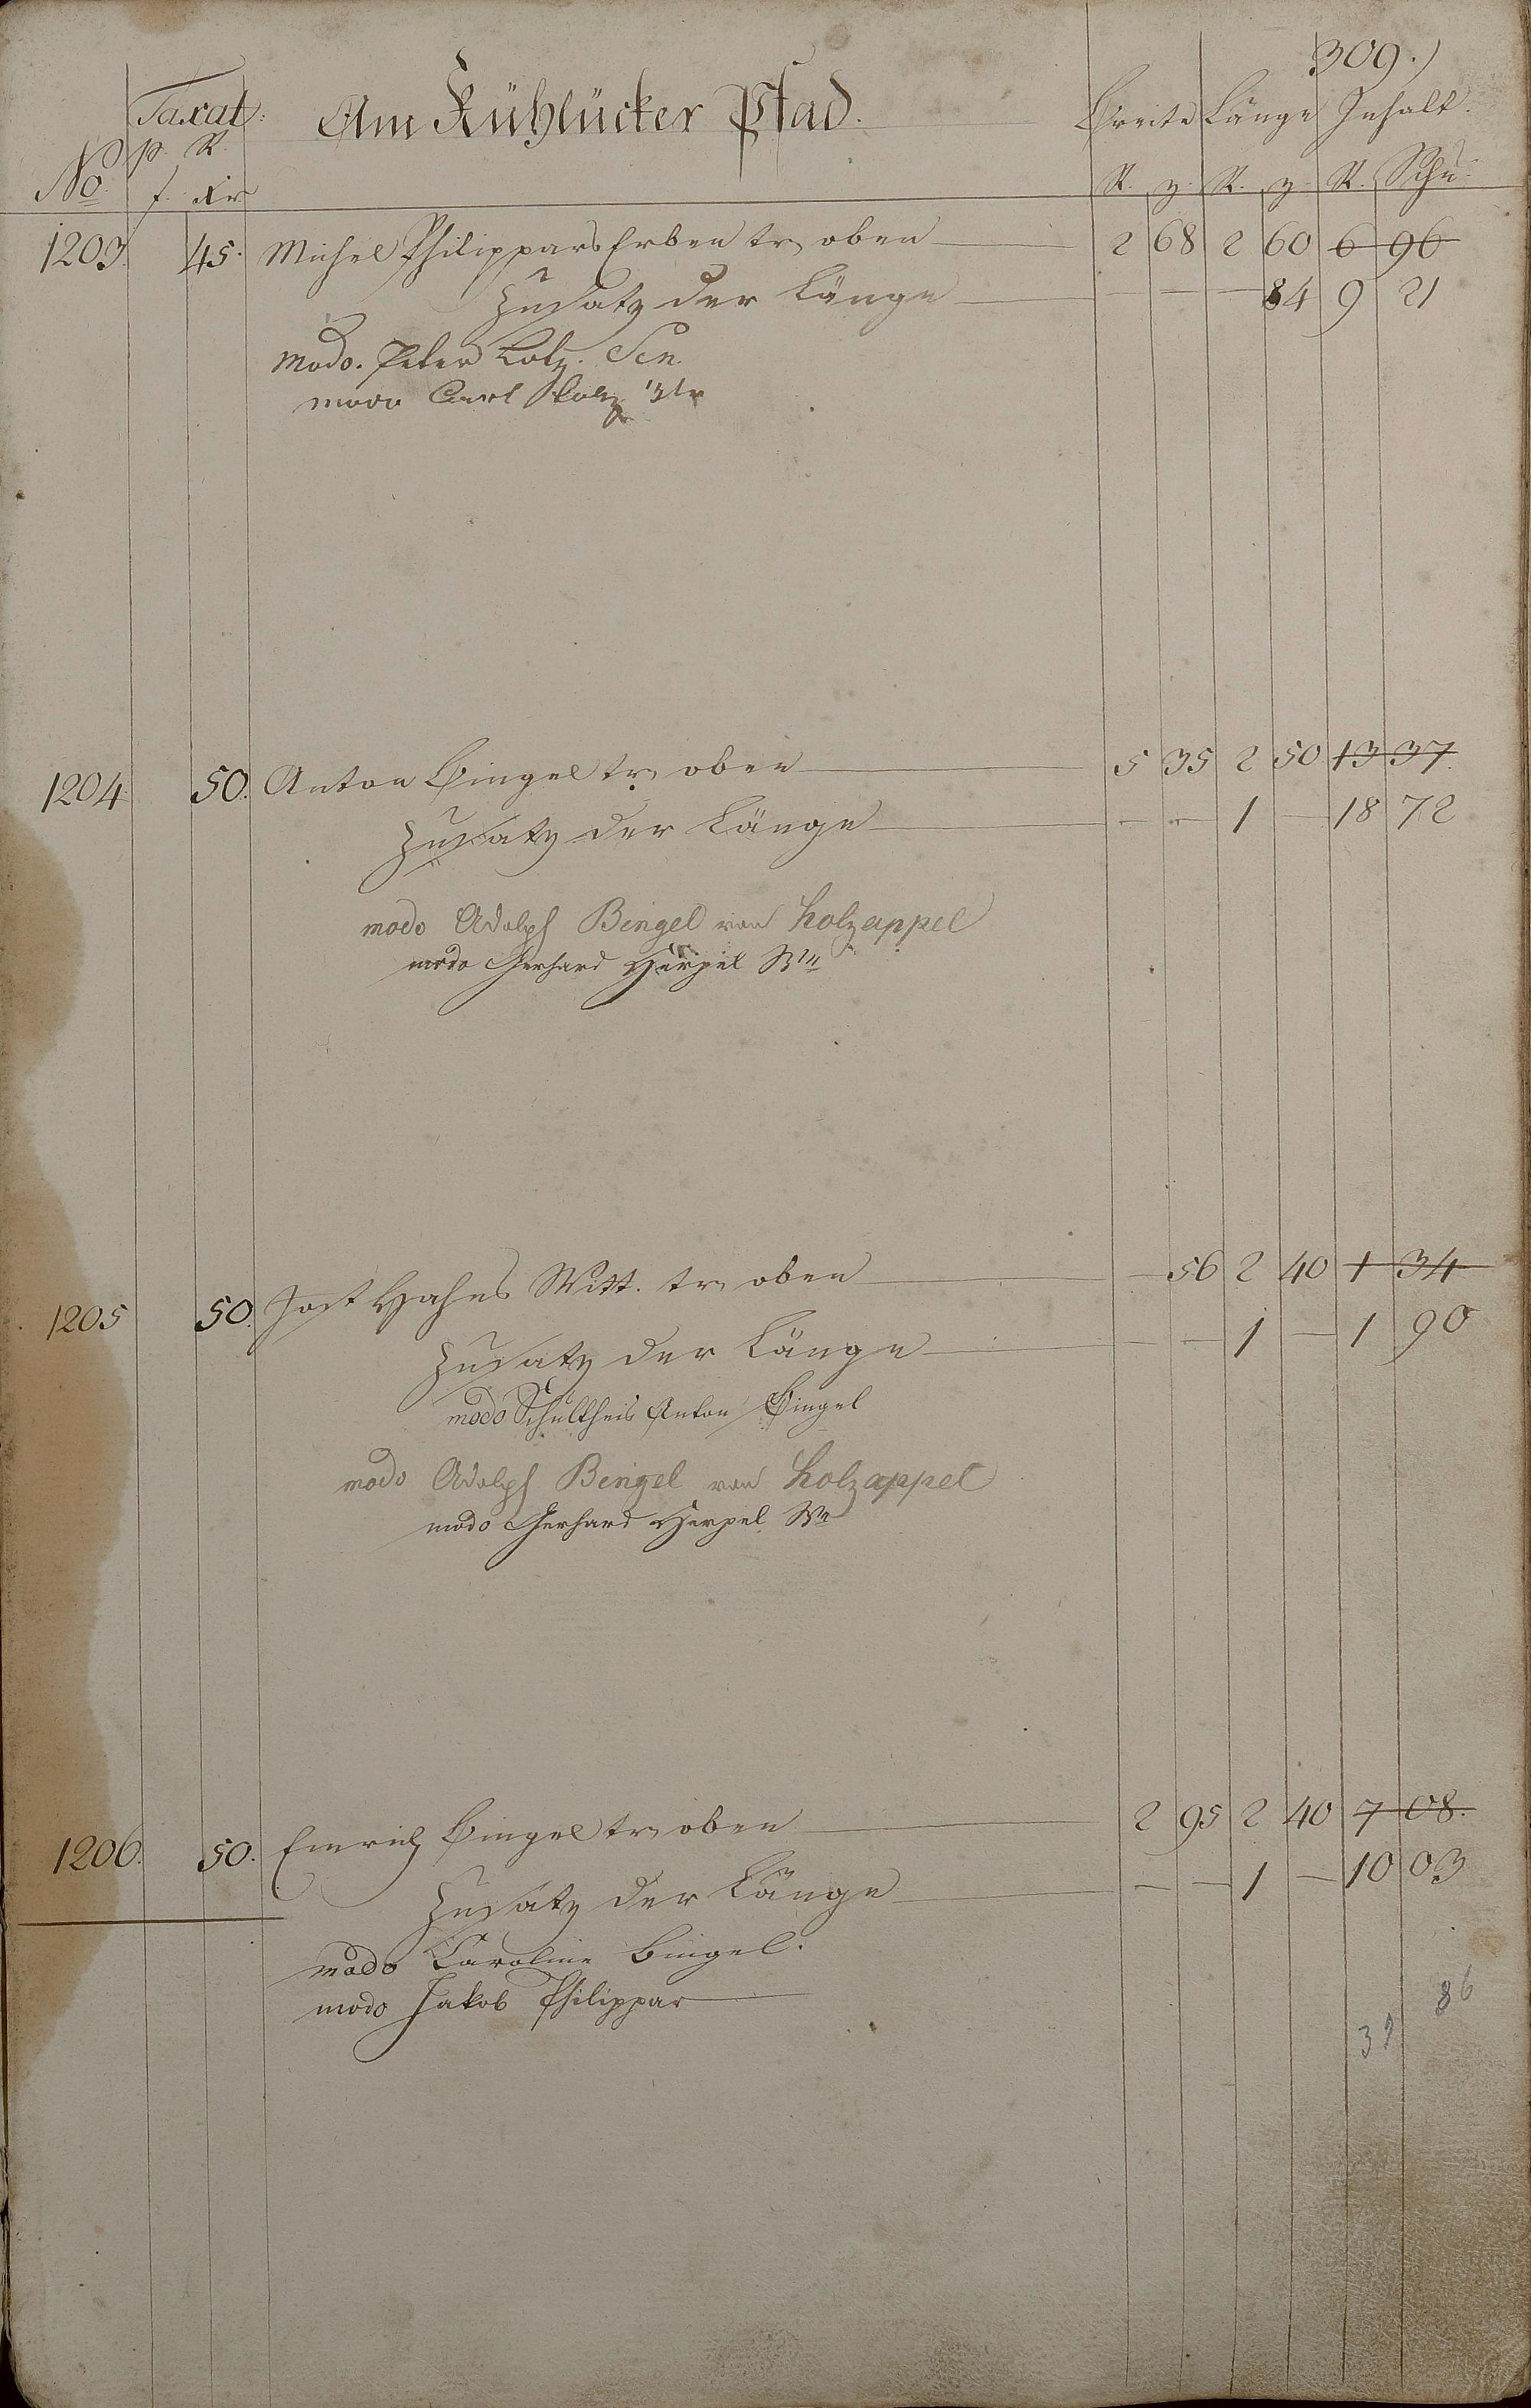 309.)
Taxat: Am Kühlücker Pfad. Breite Länge Inhalt.
p. R.
No. f. Xr R. z. R. z. R. Schu
1203. 45. Michel Philippars Erben tr. oben 2 68 2 60 6 96
Zusatz der Länge — — — 84 9 21
modo. Peter Lotz. Sen.
modo Carl
1204. 50. Anton Bingel tr. oben 5 35 2 50 13 37.
Zusatz der Länge — — 1 — 18 72
modo Adolph Bengel von Holzappel
modo Gerhard Herpel
1205 50. Jost Hahns Witt. tr. oben — 56 2 40 1 34
Zusatz der Länge — — 1 — 1 90
modo Schultheis Anton Bingel
modo Adolph Bengel von Holzappel
modo Gerhard Herpel
1206. 50. Emrich Bingel tr. oben 2 95 2 40 7 08.
Zusatz der Länge — — 1 — 10 03
modo Caroline Bingel.
modo Jakob Philippar
39 86